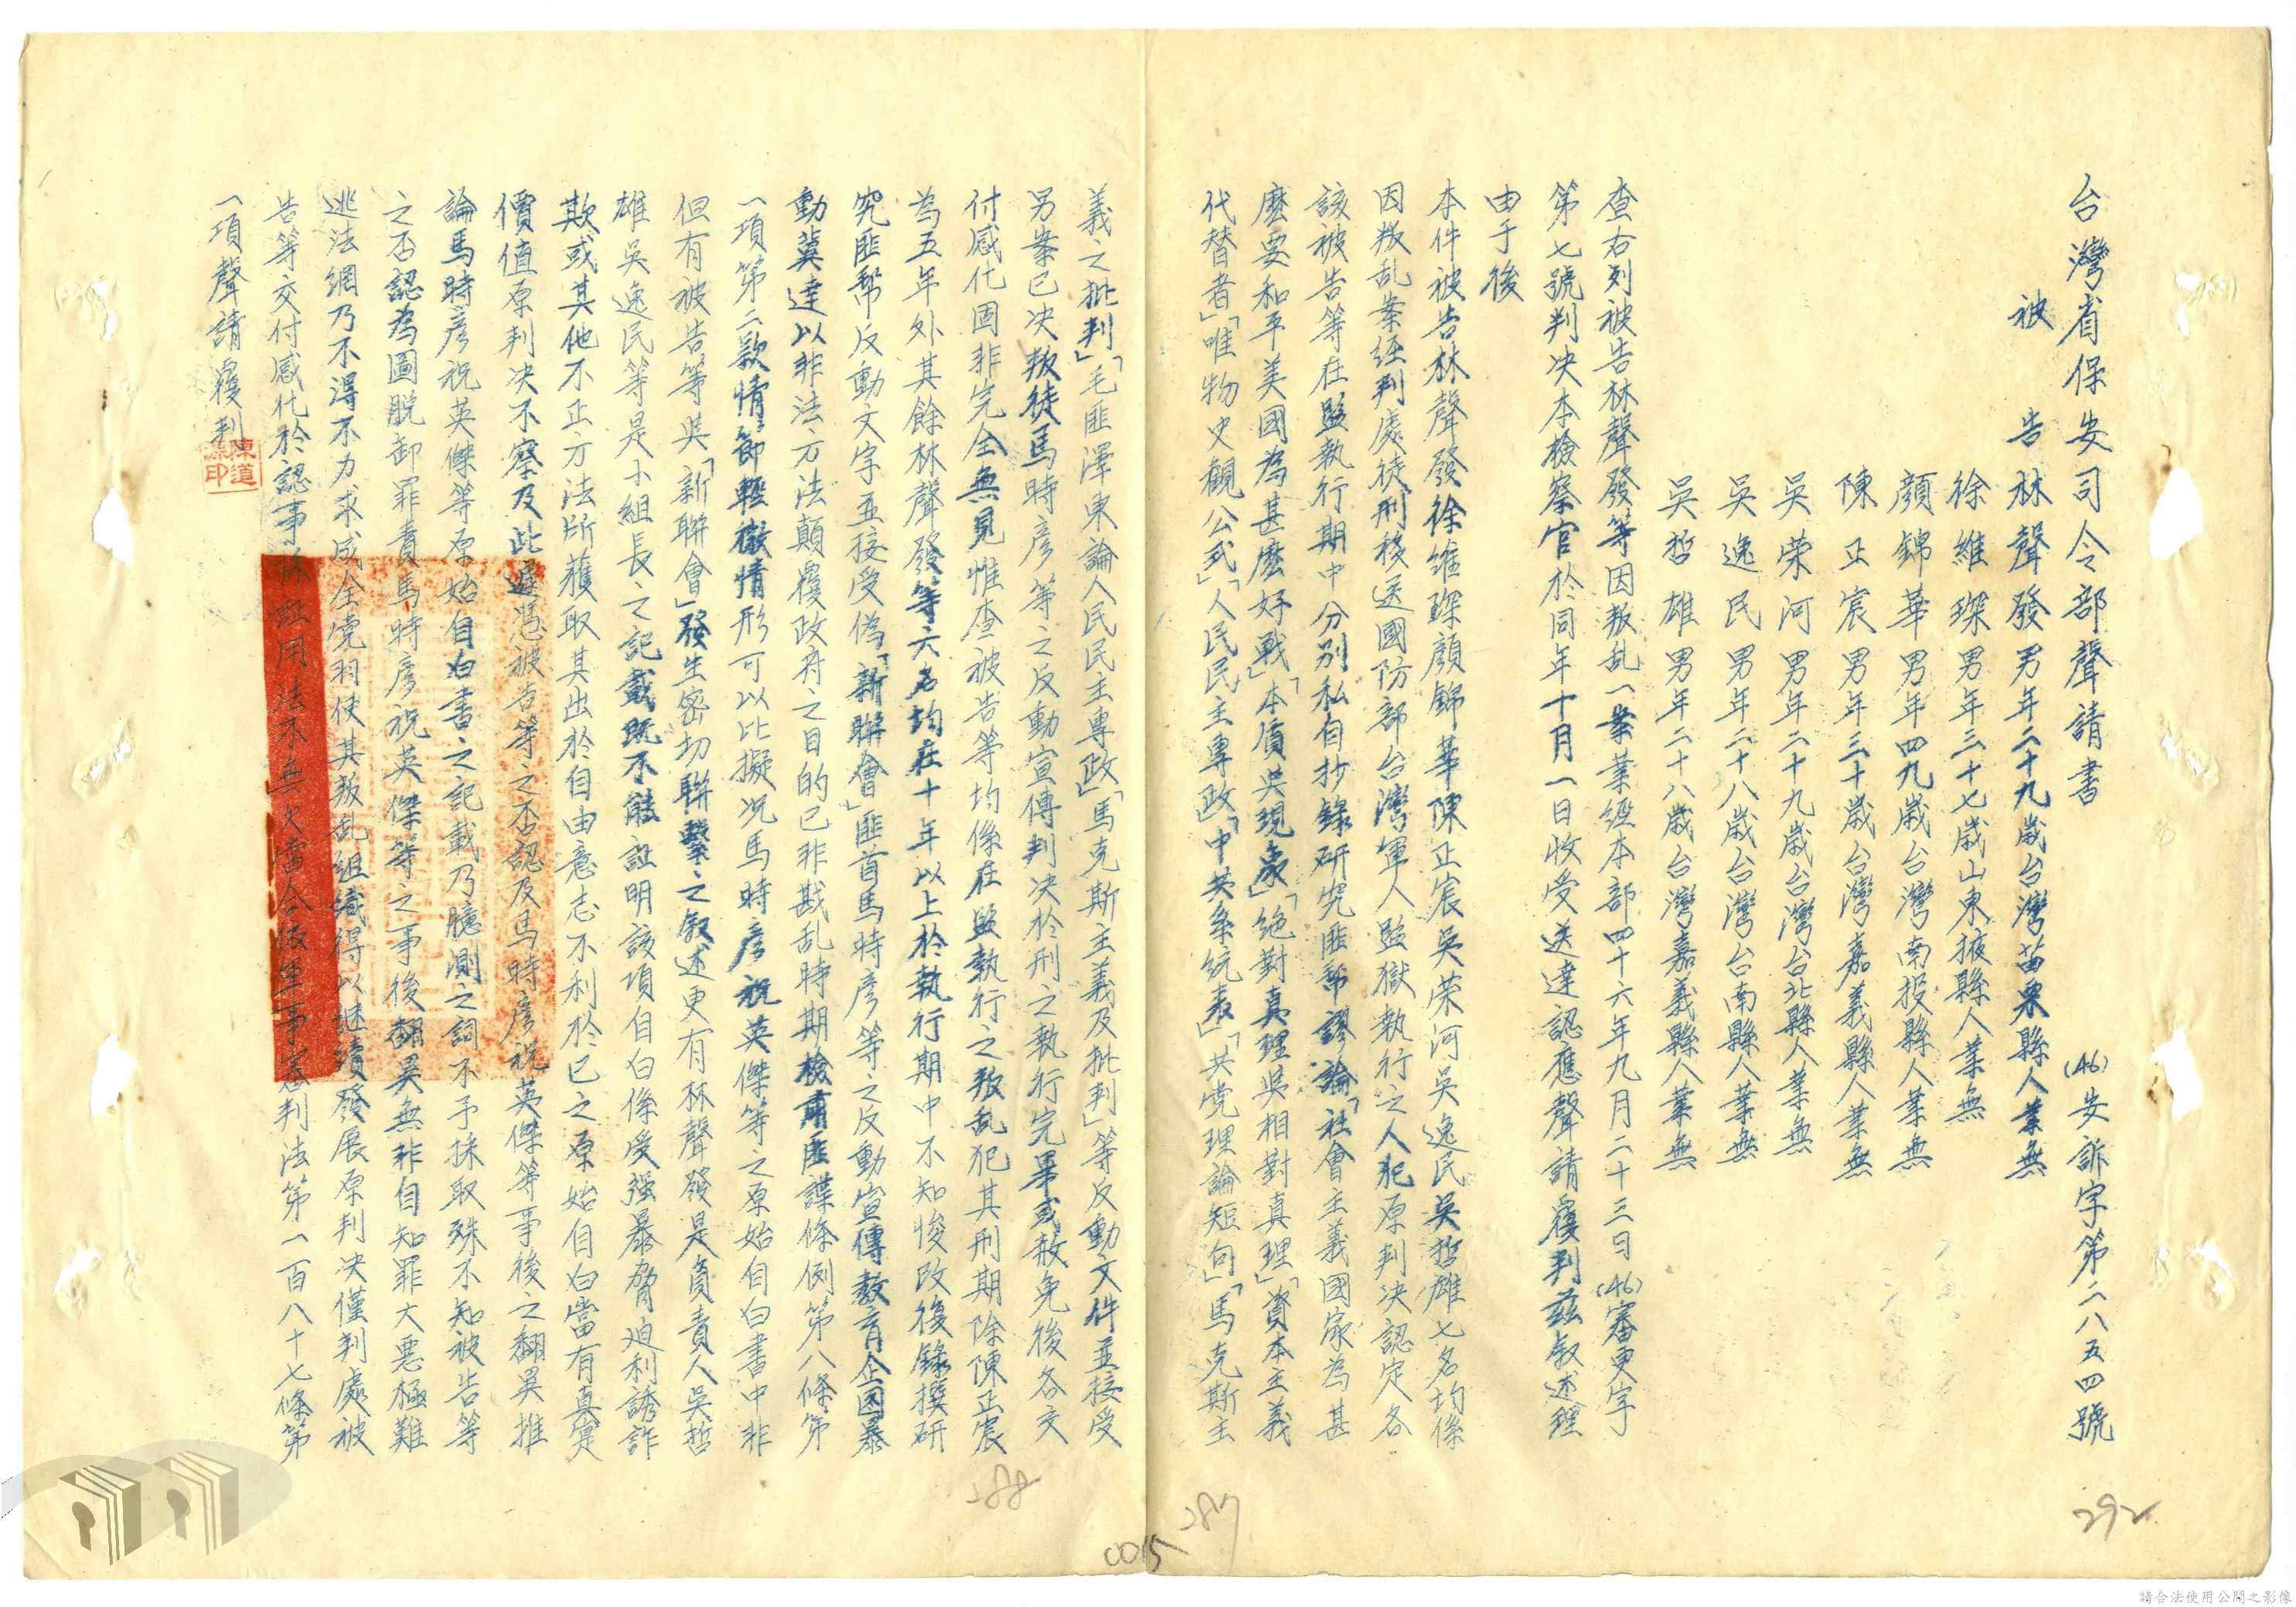 台灣省保安司令部聲請書
(46)安訴字第二八五四號
被告 林聲發 男年二十九歲台灣苗栗縣人業無
徐維琛 男年三十七歲山東掖縣人業無
顏錦華 男年四九歲台灣南投縣人業無
陳正宸 男年三十歲台灣嘉義縣人業無
吳榮河 男年二十九歲台灣台北縣人業無
吳逸民 男年二十八歲台灣台南縣人業無
吳哲雄 男年二十八歲台灣嘉義縣人業無
查右列被告林聲發等因叛乱一案業經本部四十六年九月二十三日(46)審更字
第七號判决本檢察官於同年十月一日收受送達認應聲請覆判茲叙述理
由于後
本件被告林聲發徐維琛顏錦華陳正宸吳榮河吳逸民吳哲雄七名均係
因叛乱案經判處徒刑移送國防部台灣軍人監獄執行之人犯原判决認定各
該被告等在監執行期中分別私自抄錄研究匪幫謬論「社會主義國家為甚
麽要和平美國為甚麽好戰」「本質與現象」「絕對真理與相對真理」「資本主義
代替者」「唯物史觀公式」「人民民主專政」「中共系統表」「共党理論短句」「馬克斯主
義之批判」「毛匪澤東論人民民主專政」「馬克斯主義及批判」等反動文件並接受
另案已决叛徒馬時彥等之反動宣傳判决於刑之執行完畢或赦免後各交
付感化固非完全無見惟查被告等均係在監執行之叛乱犯其刑期除陳正宸
為五年外其餘林聲發等六名均在十年以上於執行期中不知悛改後錄撰研
究匪幫反動文字並接受偽「新聯會」匪首馬時彥等之反動宣傳教育企圖暴
動冀達以非法方法顛覆政府之目的已非戡乱時期檢肅匪諜條例第八條第
一項第二款情節輕微情形可以比擬况馬時彥祝英傑等之原始自白書中非
但有被告等與「新聯會」發生密切聯繫之叙述更有林聲發是負責人吳哲
雄吳逸民等是小組長之記載既不能証明該項自白係受強暴脅迫利誘詐
欺或其他不正方法所獲取其出於自由意志不利於己之原始自白當有真實
價值原判决不察及此遽憑被告等之否認及馬時彥祝英傑等事後之翻異推
論馬時彥祝英傑等原始自白書之記載乃臆測之詞不予採取殊不知被告等
之否認為圖脫卸罪責馬時彥祝英傑等之事後翻異無非自知罪大惡極難
逃法網乃不得不力求成全党羽使其叛乱組織得以継續發展原判决僅判處被
告等交付感化於認事採証用法不無欠當合依軍事審判法第一百八十七條第
一項聲請覆判
292
287
288
0015
請合法使用公開之影像